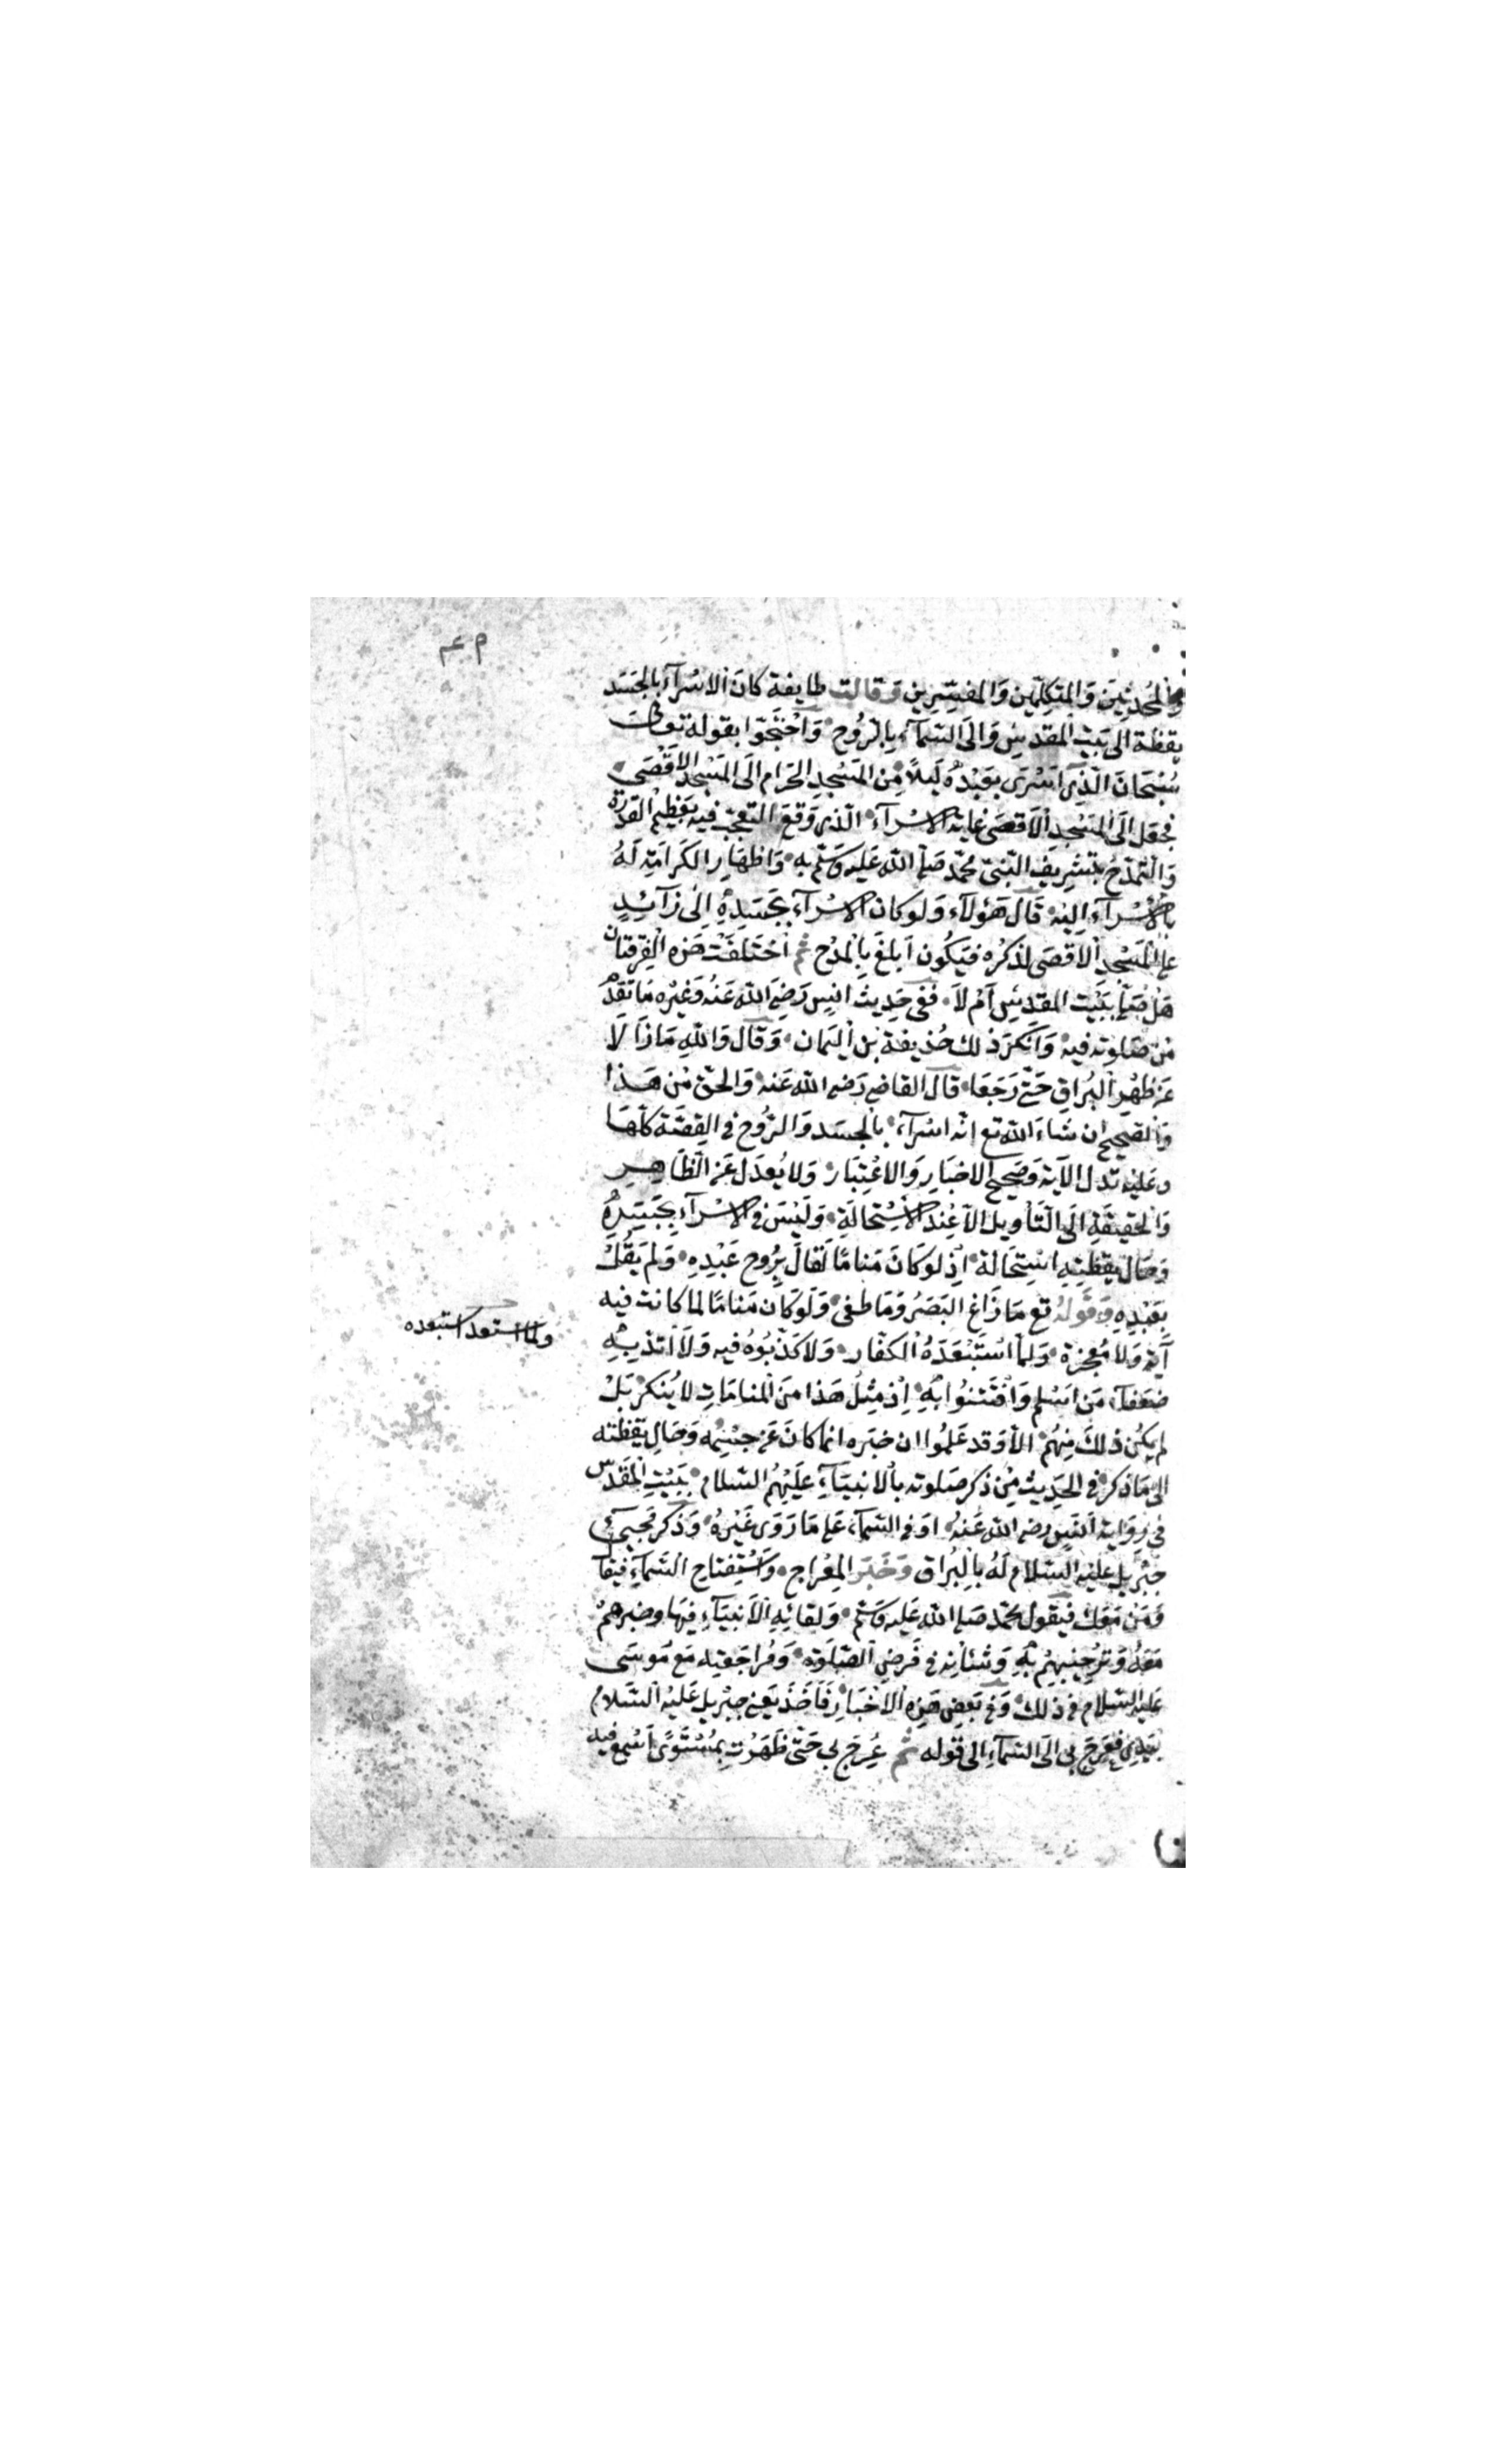 م عم
والمُحدثِينَ وَالمتكلِّمين وَالمفسِّرِين وَقالت طايفة كانَ الاسْرآءُ بالجَسَدِ
يقظة الى بَيت المقدسِ وَالَى السَّمآءِ بالرُّوح وَاحْتَجّوا بقوله تعالى
سُبْحَانَ الّذِى اسْرَى بعَبْدِهِ لَيلاً مِن المَسْجدِ الحَرام الَى المَسْجد الاَقْصَى
فجعَل الَى المَسْجدِ الاَقصَى غاية الاسرآء الّذى وَقعَ التعجّب فيه بعَظِيْم القدْرة
وَالتّمدّحُ بتشرِيف النّبىّ محمّد صَلى الله عَليه وَسَلّم به وَاظهَارِ الكَرامَةِ لَهُ
بالاسْرآءِ اليْه قَالَ هَؤلآء وَلوكان الاسْرآء بجَسَدِهِ اِلى زآئدٍ
على المَسْجدِ الاقصَى لذكَرُه فيَكُون اَبلغَ بِالمدْح ثم اخْتلفَتْ هَزه الفِرقتان
هَل صَلّى ببَيْت المقدسِ اَمْ لاَ ففى حَدِيث انسٍ رَضِىَ الله عَنهُ وَغيْرِه مَا تقدّم
مِن صَلوته فيه وَاَنكرَ ذلك حُذيفة بْن اليَمان وَقال وَاللهِ مَا زَالَا
عَن ظهْرِ البُراقِ حَتّى رَجَعَا قال القاضى رَضى الله عَنه وَالحقّ مِن هَذا
وَالصّحيح ان شآءَ الله تع انّه اسْرآءٌ بالجسَد وَالرُّوح فى القِصّة كلّهَا
وعَليْه تدلّ الآية وَصَحيح الاخبَارِ وَالاعْتِبَار وَلا يُعدَل عَن الظّاهِرِ
وَالحقيقةِ الَى التَّاوِيل الاّ عِنْد الاسْتحالةِ وَلَيْسَ فى الاسْرآءِ بجَسَدِهِ
وَحَال يقظتِهِ اسْتِحَالة اِذ لوكانَ مَنامًا لقالَ برُوح عَبْدِهِ وَلم يَقُلْ
بعَبْدِهِ وَقَولُهُ تع مَا زَاغ البَصَرُ وَمَا طغى وَلَوكان مَنامًا لما كانت فيه
آية وَلا مُعجزة وَلما اسْتَبْعَدَهُ الكفّار وَلا كَذّبُوهُ فيه وَلاَ ارتدّ بِهِ
ولما استبعد استبعده
ضعَفآءُ مَن اسْلم وَافْتَتنُوا بهِ اِذ مِثلُ هَذا مِنَ المنامَاتِ لا يُنكرُ بَلْ
لم يكُن ذلكَ مِنهُم الاّ وَقد عَلمُوا ان خبَره انماكانَ عَن جسْمِه وَحَالِ يقظته
الى مَا ذكر فى الحَدِيث مِنْ ذكر صَلوته بالانبيَآءِ عَليْهمُ السّلام ببَيْتِ المقدَس
فى رِوَاية انسٍ رضى الله عَنهُ اوْ فى السّمآءِ عَلى مَا رَوَى غيْرهُ وَذكر مَجيءِ
جبْرِيل عليْه السّلام لَهُ بالبُراق وَخبَرِ المِعْراج وَاسْتِفتاح السّمآء فيقا
وَمَن مَعك فيَقول محمّد صَلى الله عَليه وَسَلّم وَلقائِهِ الاَنبيَآءِ فيهَا وخبرهِمْ
مَعهُ وَترْحِيْبهِمْ بهِ وَشانِه فى فَرضِ الصّلوة وَمُراجَعتِه مَع مُوسَى
عَليْه السّلام فى ذلك وَفى بَعض هَزه الاخبَارِ فَاَخَذَ يَعنى جبْرِيل عَليْه السّلامُ
بيَدِى فعرَجَ بى الَى السّمآءِ الى قوله ثم عُرِجَ بى حَتّى ظَهَرْت بمُسْتَوًى اَسْمع فيه